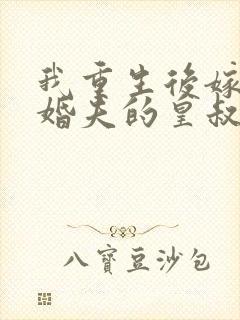 我重生後嫁
婚夫的皇叔
八寶豆沙包